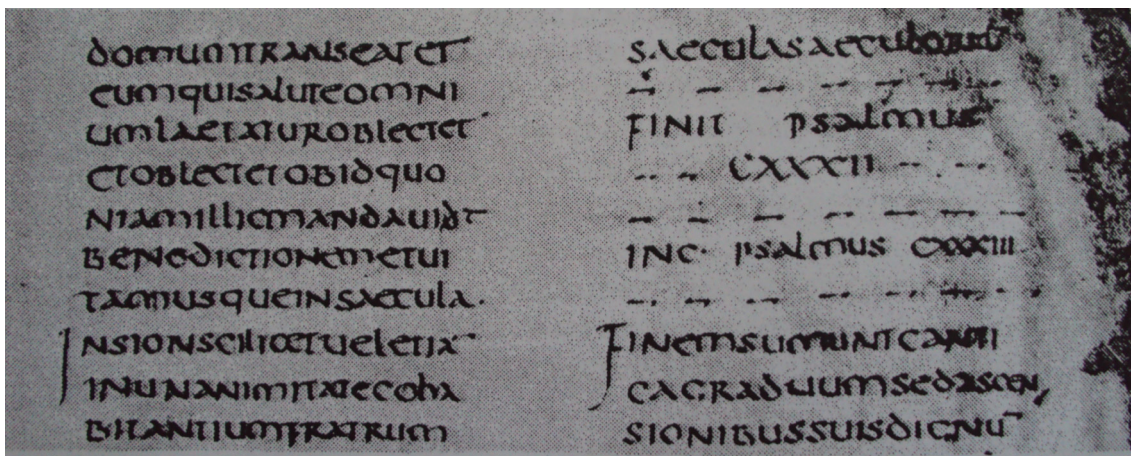 domumtranseatet
eumquisaluteomni
umlaetaturoblectet
etoblectetobidquo
niamillicmandauidt
benedictionemetui
tamusqueinsaecula.
insionscilicetueletia
inunanimitatecoha
bitantiumfratrum
saeculasaeculorum
finit psalmus
CXXXII
inc· psalmus CXXXIII
finemsumuntcanti
cagraduumsedascen
sionibussuisdignū